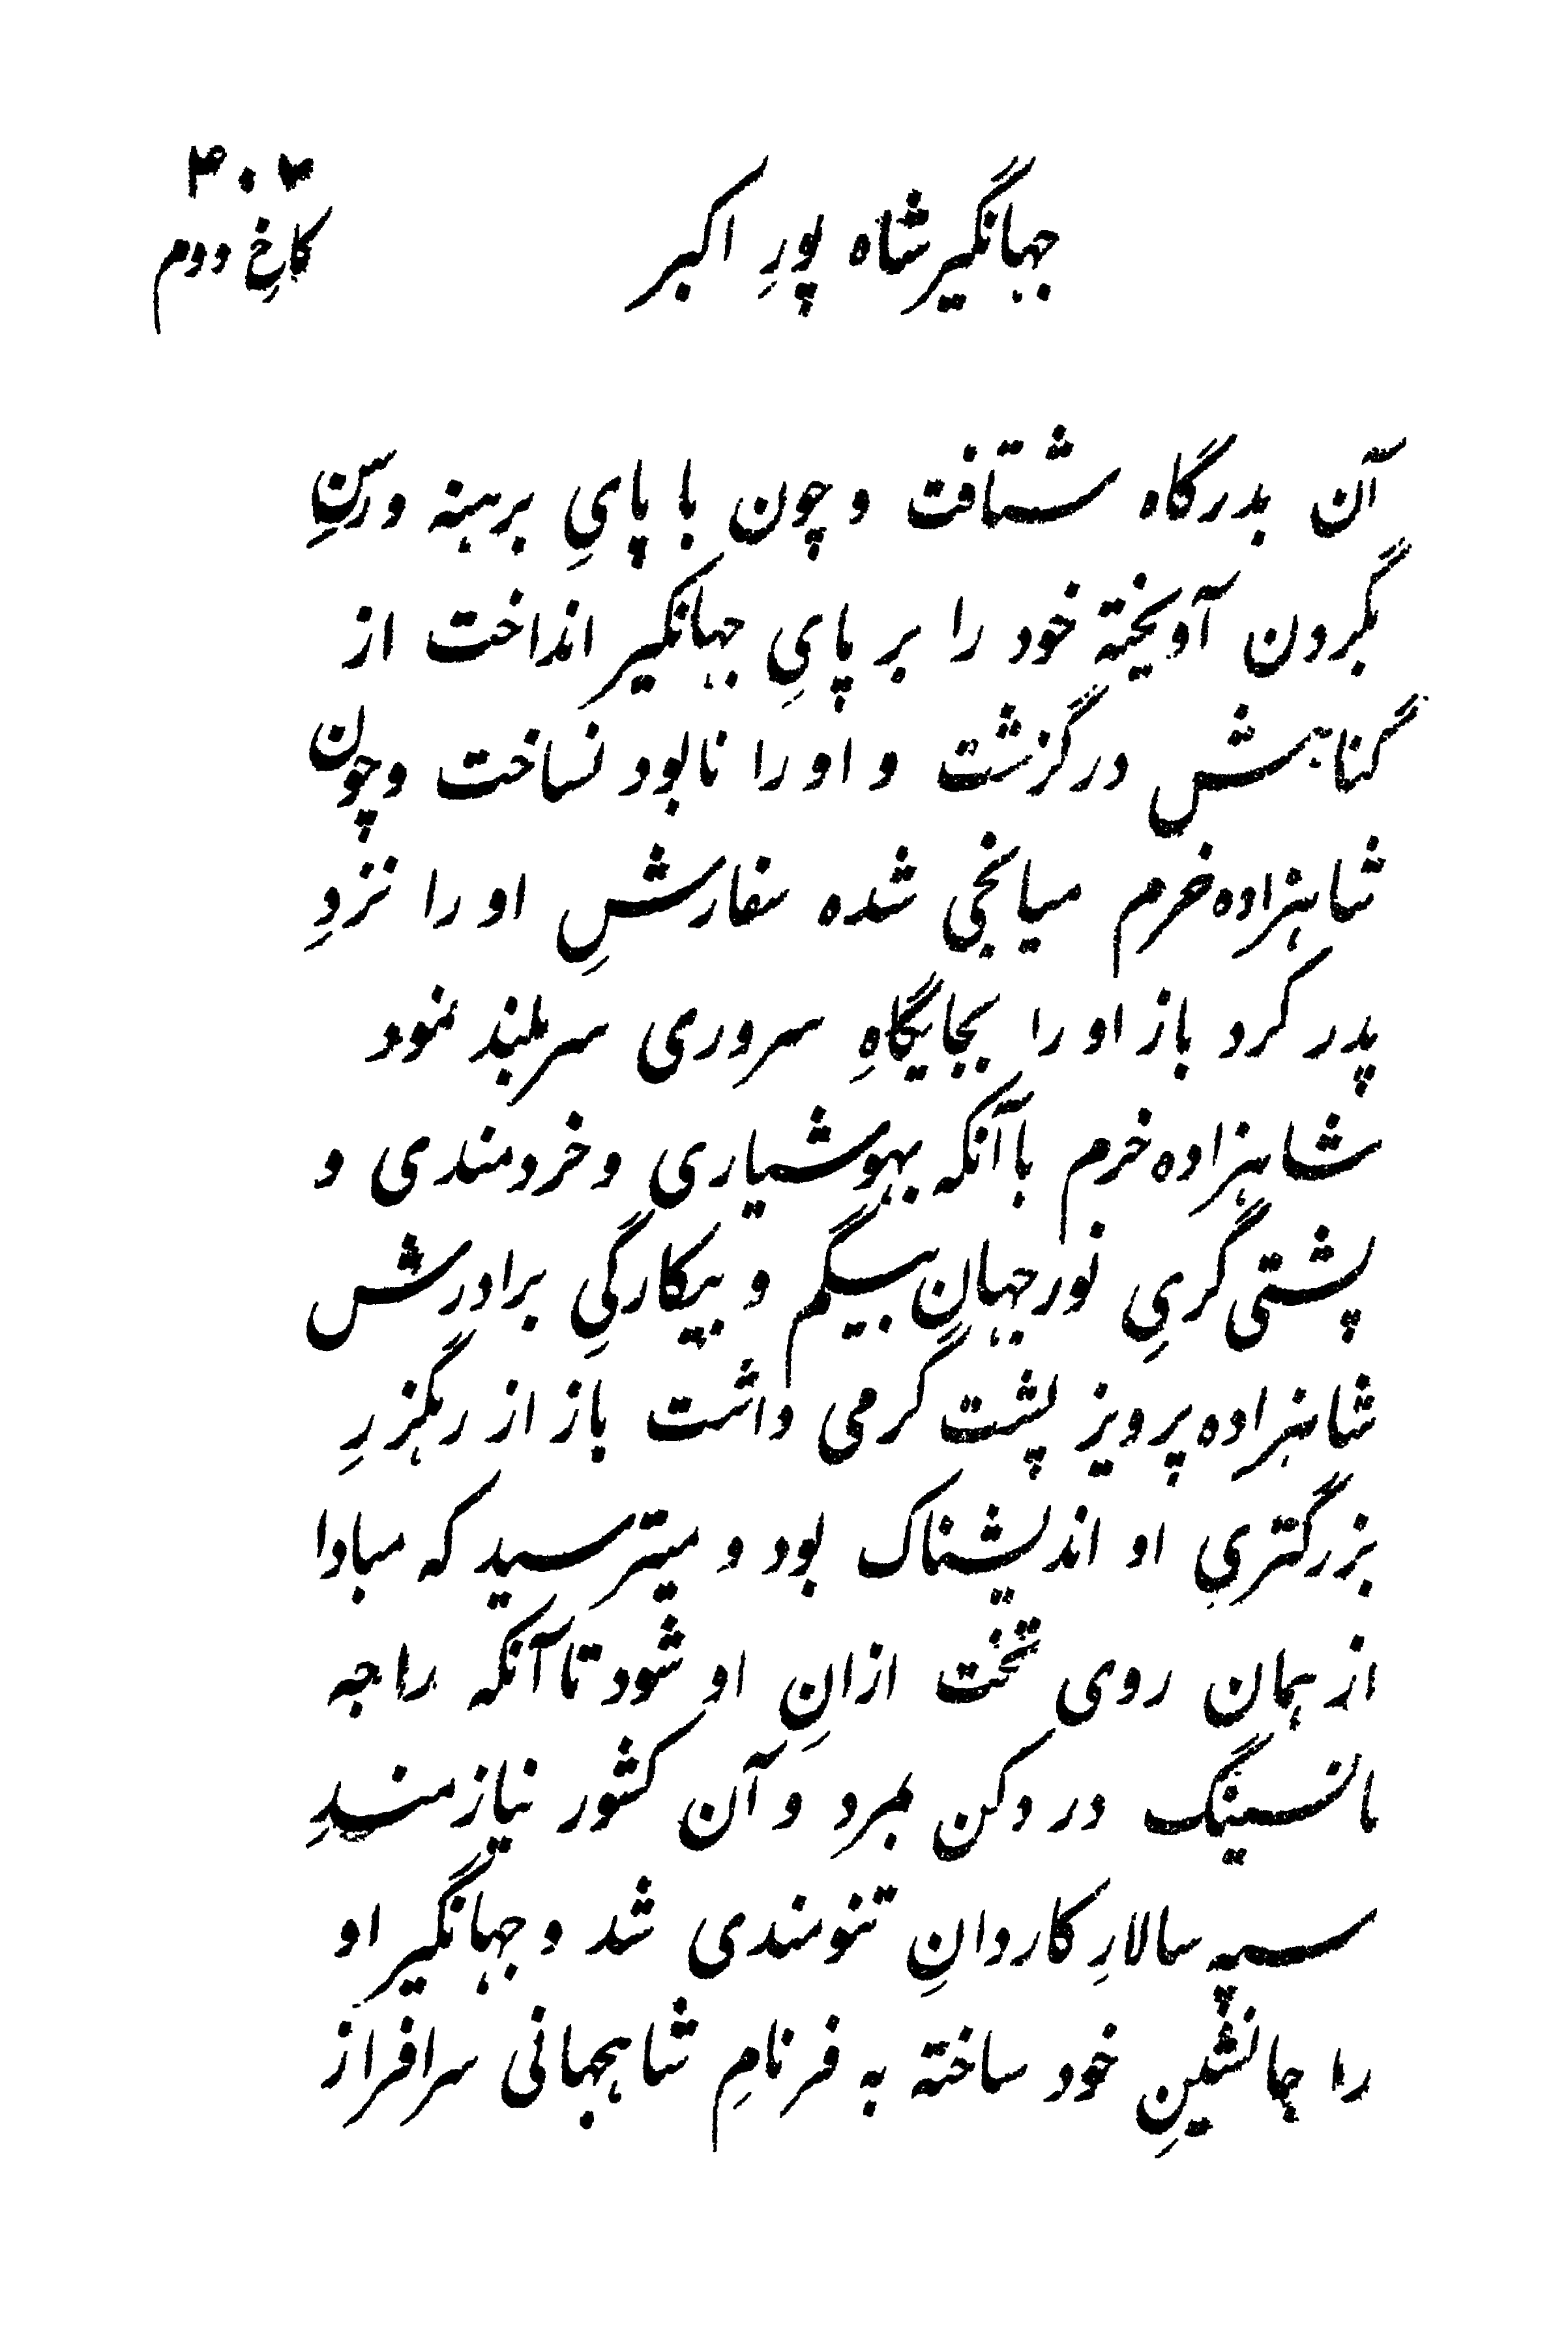 ۴۰۴
کاخِ دوم
جهانگیر شاه پورِ اکبر
آن بدرگاه شتافت و چون با پایِ برهنه و رسنِ
بگردن آویخته خود را بر پایِ جهانگیر انداخت از
گناهش درگزشت و او را نابود نساخت و چون
شاهزاده خرم میانجی شده سفارشِ او را نزدِ
پدر کرد باز او را بجایگاهِ سروری سربلند نمود
شاهزاده خرم با آنکه بهوشیاری و خردمندی و
پشتی گریِ نورجهان بیگم و بیکارگیِ برادرش
شاهزاده پرویز پشت گرمی داشت باز از رهگزرِ
بزرگتریِ او اندیشناک بود و میترسید که مبادا
از همان روی تخت ازانِ او شود تا آنکه راجه
مانسینگ در دکن بمرد و آن کشور نیازمندِ
سپه سالارِ کاردانِ تنومندی شد و جهانگیر او
را جانشینِ خود ساخته به فرنامِ شاهجهانی سرافراز